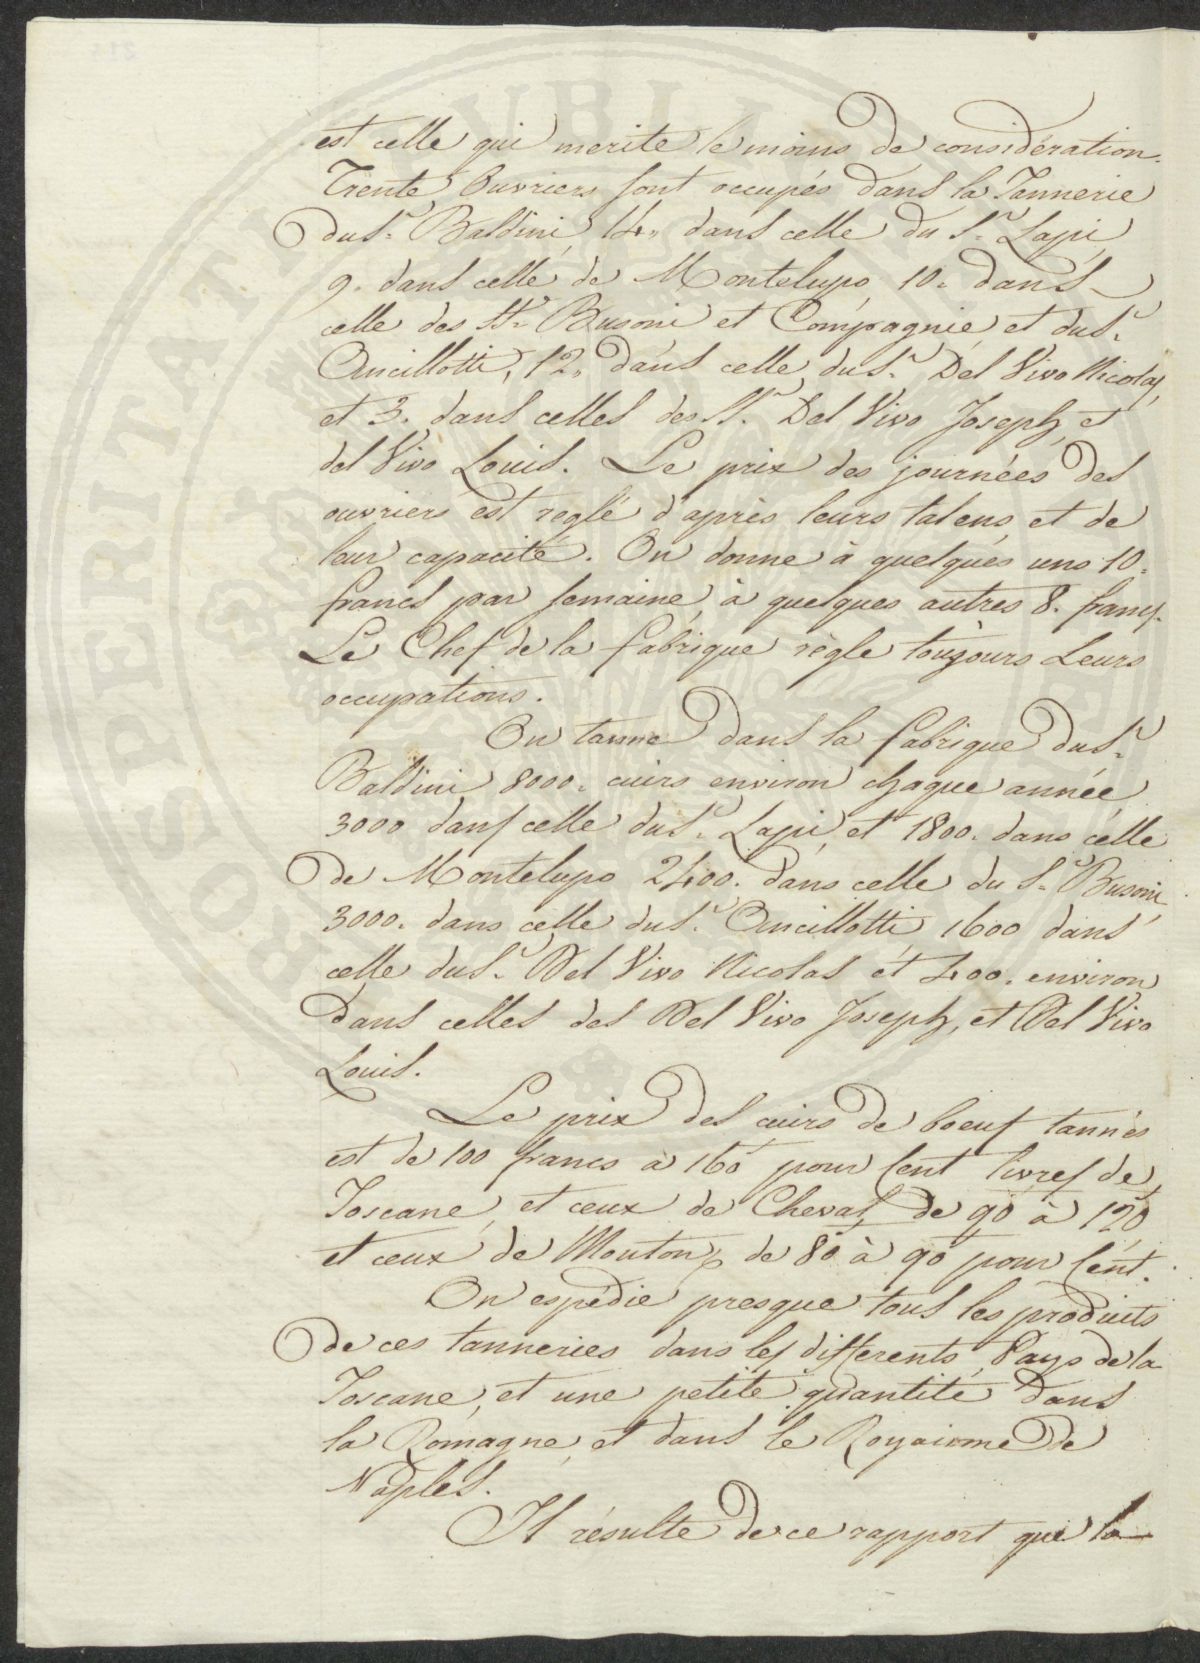 est celle qui merite le moins de considération.
Trente Ouvriers sont occupés dans la Tannerie
du S.r Baldini, 14. dans celle du S.r Lapi,
9. dans celle de Montelupo, 10. dans
celle des SS.rs Busoni et Compagnie, et du S.r
Ancillotti, 12. dans celle du S.r Del Vivo Nicolas,
et 3. dans celles des SS.rs Del Vivo Joseph, et
del Vivo Louis. Le prix des journées des
ouvriers est reglé d'après leurs talens, et de
leur capacité. On donne à quelques uns 10.
francs par semaine, à quelques autres 8. francs.
Le Chef de la fabrique règle toujours Leurs
occupations.
On tanne dans la fabrique du S.r
Baldini 8000. cuirs environ chaque année,
3000 dans celle du S.r Lapi, et 1800. dans celle
de Montelupo 2400. dans celle du S.r Busoni,
3000. dans celle du S.r Ancillotti, 1600 dans
celle du S.r Del Vivo Nicolas et 400. environ
dans celles des Del Vivo Joseph, et Del Vivo
Louis.
Le prix des cuirs de boeuf tannés
est de 100 francs à 160 pour Cent livres de
Toscane, et ceux de Cheval, de 90 à 120
et ceux de Mouton, de 80 à 90 pour Cent.
On espédie presque tous les produits
de ces tanneries dans les differents Pays de la
Toscane, et une petite quantité dans
la Romagne, et dans le Royaume de
Naples.
Il résulte de ce rapport que la